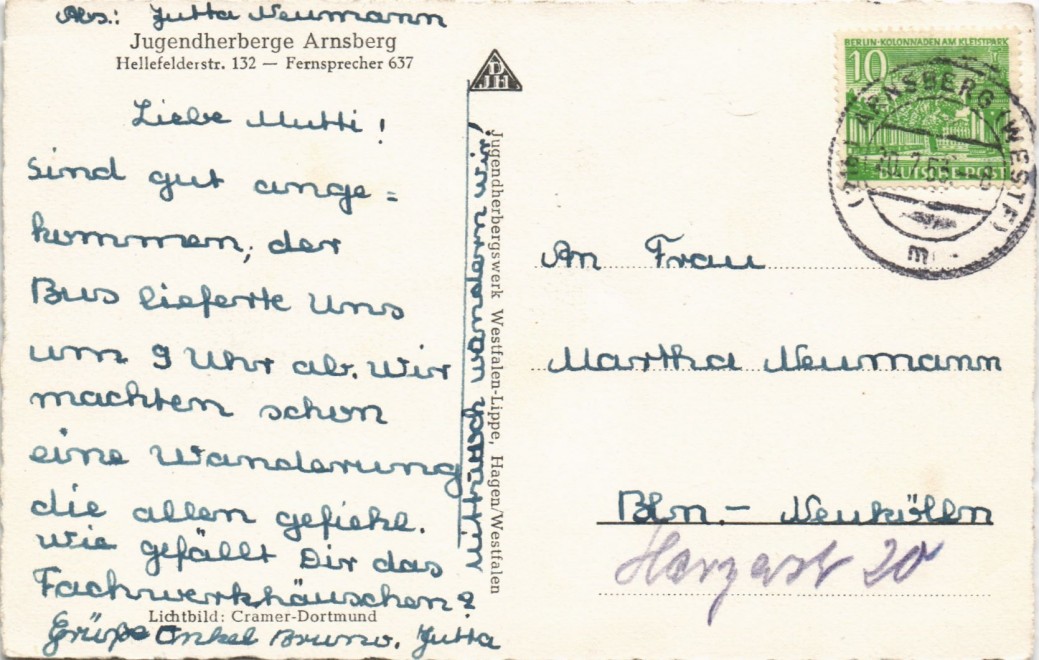 Abs.: Jutta Neumann
Jugendherberge Arnsberg
Hellefelderstr. 132 — Fernsprecher 637
Liebe Mutti!
Sind gut ange=
kommen, der
Bus lieferte uns
um 9 Uhr ab. Wir
machten schon
eine Wanderung
die allen gefiehl.
Wie gefällt Dir das
Fachwerkhäuschen?
Lichtbild: Cramer-Dortmund
Grüße Onkel Bruno. Jutta
DJH
Jugendherbergswerk Westfalen-Lippe, Hagen/Westfalen
BERLIN-KOLONNADEN AM KLEISTPARK
10
DEUTSCHE POST
ARNSBERG (WESTF)
20.7.53
An Frau
Martha Neumann
Bln.- Neukölln
Harzerst 20